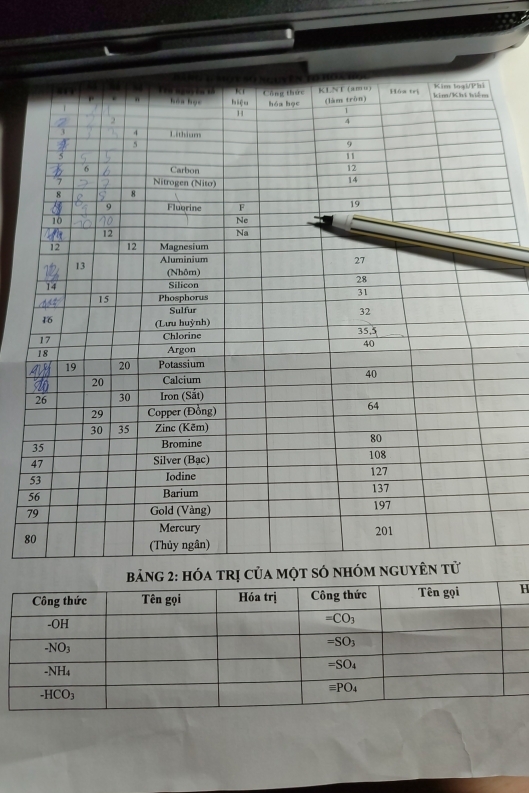 Tên nguyên tố hóa học Kí hiệu Công thức hóa học KLNT (amu) (làm tròn) Hóa trị Kim loại/Phi kim/Khí hiếm
1 H 1
2 4
3 4 Lithium
5 9
5 11
6 Carbon 12
7 Nitrogen (Nitơ) 14
8 8
9 Fluorine F 19
10 Ne
12 Na
12 12 Magnesium
13 Aluminium (Nhôm) 27
14 Silicon 28
15 Phosphorus 31
16 Sulfur (Lưu huỳnh) 32
17 Chlorine 35,5
18 Argon 40
19 20 Potassium
20 Calcium 40
26 30 Iron (Sắt)
29 Copper (Đồng) 64
30 35 Zinc (Kẽm)
35 Bromine 80
47 Silver (Bạc) 108
53 Iodine 127
56 Barium 137
79 Gold (Vàng) 197
80 Mercury (Thủy ngân) 201
BẢNG 2: HÓA TRỊ CỦA MỘT SỐ NHÓM NGUYÊN TỬ
Công thức Tên gọi Hóa trị Công thức Tên gọi H
-OH =CO₃
-NO₃ =SO₃
-NH₄ =SO₄
-HCO₃ ≡PO₄